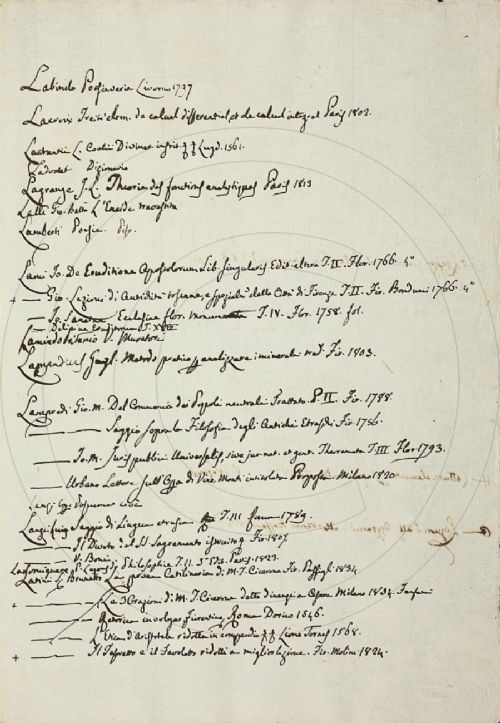 Lacroix Traité elem. de calcul differentiel, et de calcul integral Paris 1802.
Lactantii L. Coelii Divinar. instit. Lugd. 1561.
Lagrange J. L. Theorie des fonctions analytiques Paris 1813
Lalli Gio. Batta L'Eneide travestita
Lamberti Poesie.
Lami Jo. De Eruditione Apostolorum Lib. singularis Edit. altera T. II. Flor. 1766. 4°
+ — Gio. Lezioni d'Antichità toscane, e spezialm. della Città di Firenze T. II. Fir. Bonducci 1766. 4°
— Eccl
esiae flor. monumenta T. IV. Flor. 1758. fol.
— Deliciae Eruditorum T. XVIII
V. Muratori
Metodo pratico p analizzare i minerali trad. Fir. 1803.
Lampredi Gio. M. Del Commercio dei Popoli neutrali Trattato P. II Fir. 1788
— Saggio sopra la Filosofia degli Antichi Etruschi Fir. 1756.
— Jo. M. Juris publici Universalis, sive jur. nat. et gent. Theoremata T. III Flor. 1793.
— Urbano Lettere sull'Opa di Vinc. Monti intitolata Proposta. Milano 1820
Lanzi Luigi Saggio di Lingua etrusca T. III 1789.
— Il Divoto del SS. Sagramento istruito Fir. 1807.
V. Bonis
Laromiguiere P. Leçons de Philosophie T. II. Paris. 1823.
Latini Brunetto La prima Catilinaria di M. T. Cicerone Fir. Passigli 1834
+ — Le 3 Orazioni di M. T. Cicerone dette dinanzi a Cesare Milano 1834.
— Retorica in volgar fiorentino, Roma Dorico 1546.
— L'Etica d'Aristotele ridotta in compendio Lione Tornes 1568.
+ — Il Tesoretto e il Favoletto ridotti a miglior lezione. Fir. Molini 1824.